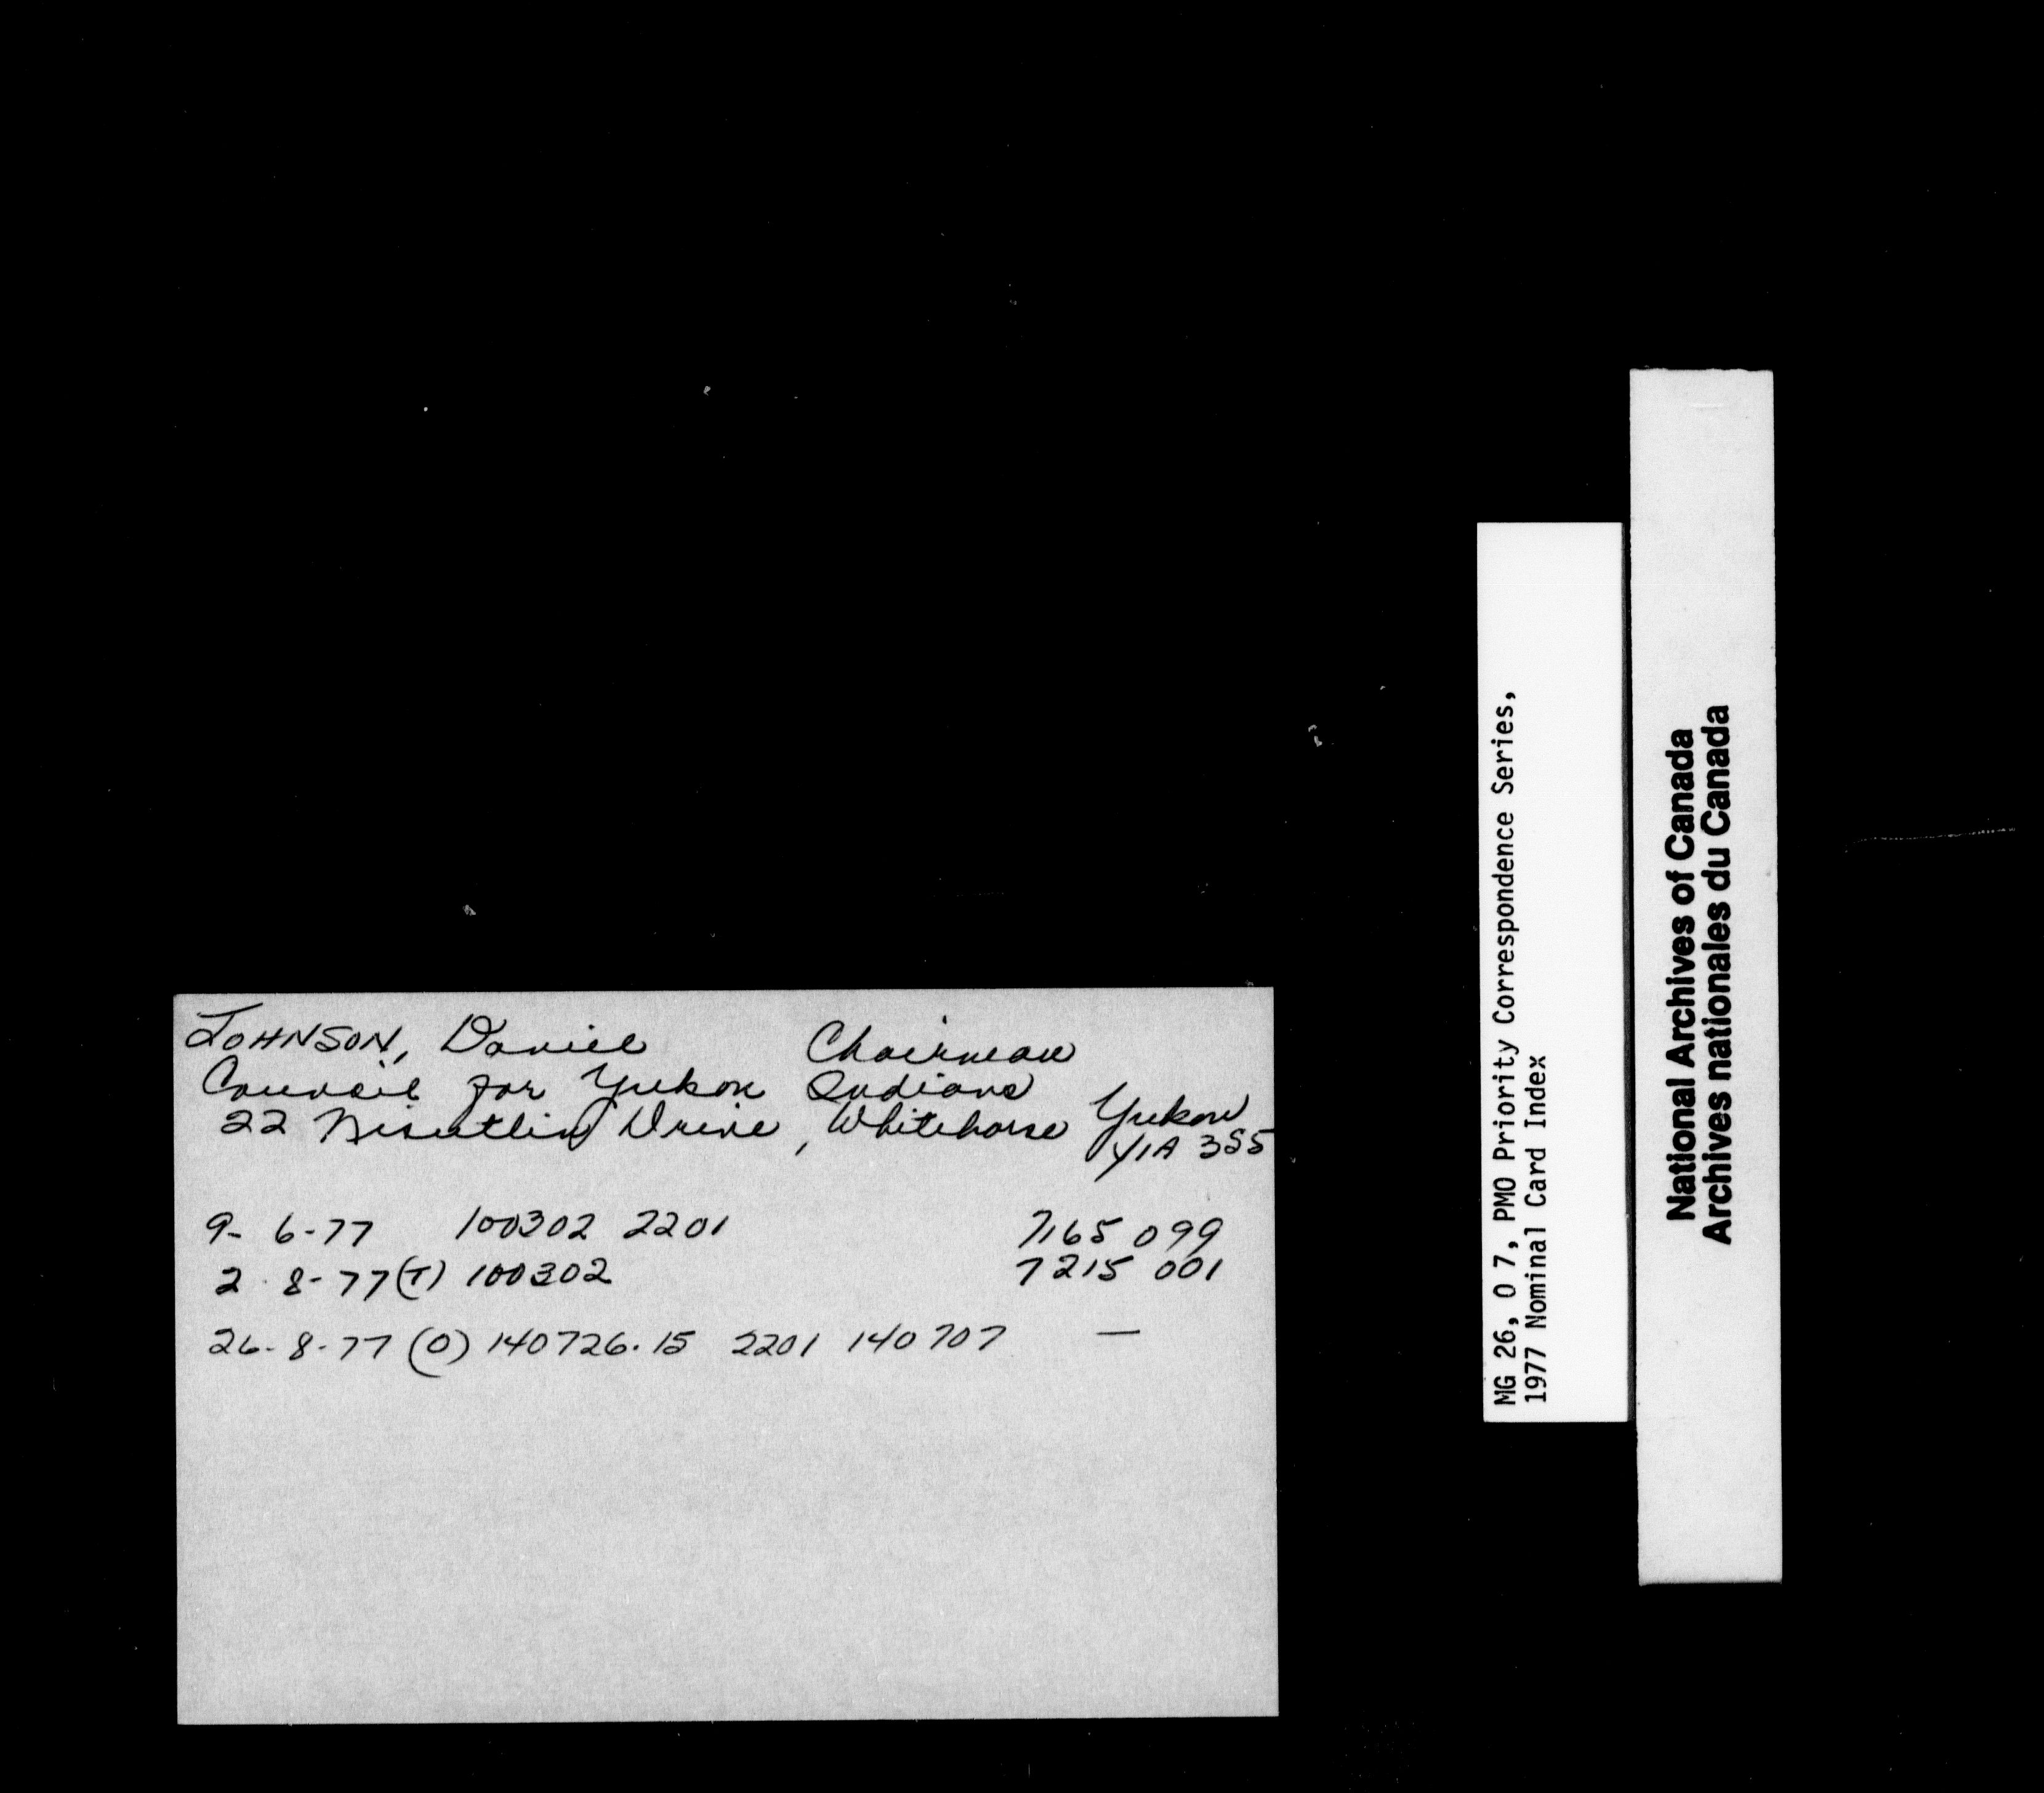 JOHNSON, Daniel Chairman
Council for Yukon Indians
22 Nisutlin Drive, Whitehorse Yukon
Y1A 3S5
9- 6-77 100302 2201 7165 099
2 8-77 (T) 100302 7215 001
26-8-77 (O) 140726.15 2201 140707 —
MG 26, O 7, PMO Priority Correspondence Series,
1977 Nominal Card Index
National Archives of Canada
Archives nationales du Canada